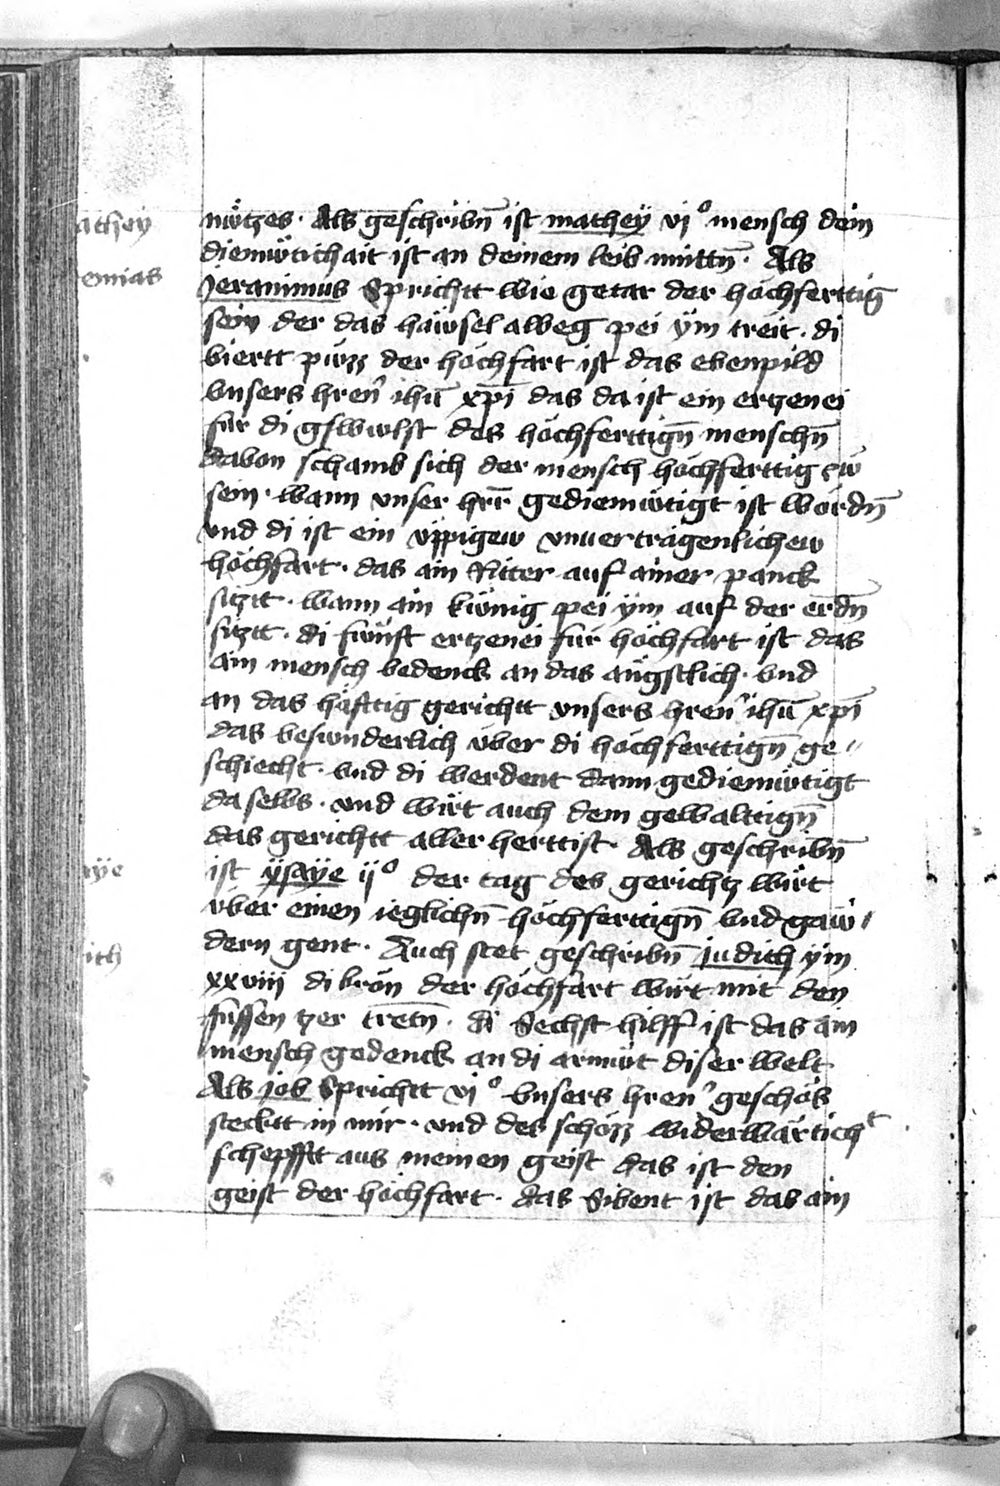 athey
emias
aÿe
ith
nẅtzes · Als geschribn̄ ist mathey vi° mensch dein
diemẅtichait ist an deinem leib mittn̄ · Als
Jeranimus Sprichtt wie getar der hochferttig
sein der das häwsel alweg pei ÿm treit · di
viertt püzz der hochfart ist das ebenpild
vnsers hren̄ ihū xp̄i das da ist ein ertzenei
für di gswulst des hochferttign̄ menschn̄
dabon schamb sich der mensch hochferttig zw
sein · wann vnser hrr̄ gediemẅtigt ist wordn̄
vnd di ist ein üppigew vnuertragenlichew
hochfart · das ain Ritter auf ainer panck
sitztt · wann ain kwnig pei ÿm auf der erdn̄
sitztt · di fwnft ertzenei für hochfart ist das
ain mensch bedenck an das angstlich · vnd
an das häfttig gerichtt vnsers hren̄ ihū xp̄i
das beswnderlich über di hochferttign̄ ge〃
schiecht · vnd di werdent dann gediemẅtigt
daselbs · vnd wirt auch dem gewalttign̄
das gerichtt aller herttist · Als geschribn̄
ist ÿsaÿe ij° der tag des gerichtz wirt
vber einen ieglichn̄ hochferttign̄ vnd gaw〃
dern gent · Auch stet geschribn̄ judith ÿm
xxviij di kron der hochfart wirt mit den
füssen tzer tretn̄ · di Sechst hilff ist das ain
mensch gedenck an di armüt diser welt
Als job Sprichtt vi° vnsers hren̄ geschos
stecktt in mir · vnd des schozz widerwärtich^t
schepfftt aus meinen geist das ist den
geist der hochfart · das Sibent ist das ain